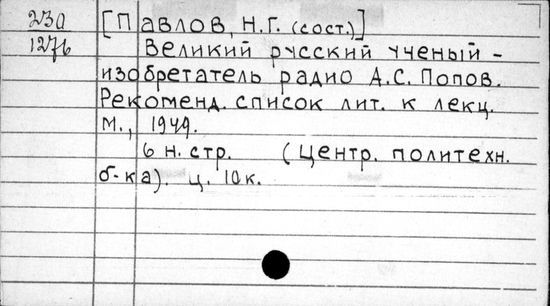 230 [Павлов, Н.Г. (сост.)]
1276 Великий русский ученый -
изобретатель радио А.С. Попов.
Рекоменд. список лит. к лекц.
М., 1949.
6 н. стр. (Центр. политехн.
б-ка). ц. 10 к.